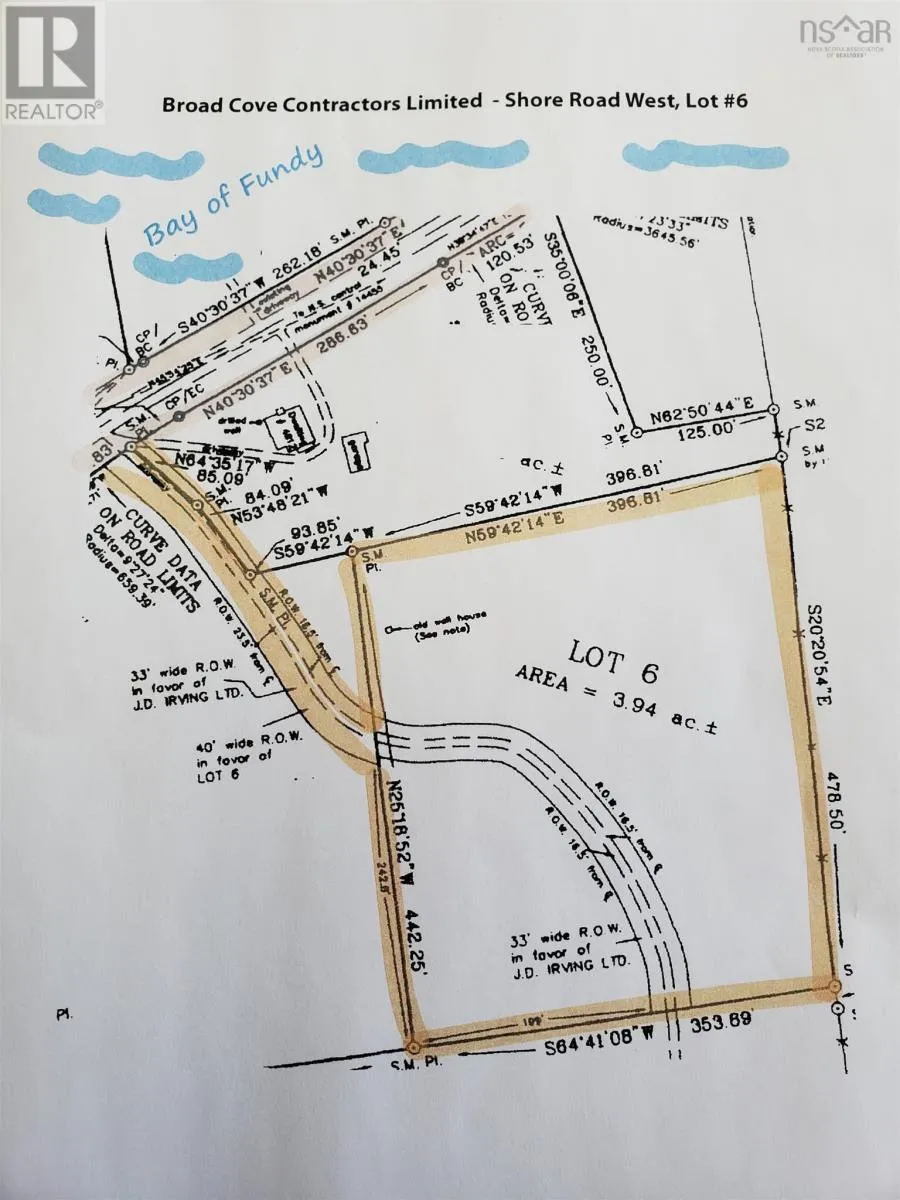 REALTOR®
nsar
NOVA SCOTIA ASSOCIATION
OF REALTORS®
Broad Cove Contractors Limited - Shore Road West, Lot #6
Bay of Fundy
S40°30'37"W 262.18' S.M. Pl.
N40°30'37"E
24.45'
existing
driveway
To N.S. control
monument # 14455
CP/
BC
Pl.
CP/EC
N40°30'37"E 286.83'
CP/
BC
ARC=
120.53'
CURVE
ON RO
Delta=
Radiu
S35°00'06"E 250.00'
Radius=3645.56'
N62°50'44"E
125.00'
S.M.
Pl.
S.M
S2
S.M
by
S.M.
Pl.
.83'
drilled
well
N64°35'17"W
85.09'
S.M.
Pl.
84.09'
N53°48'21"W
93.85'
S59°42'14"W
ac. ±
S59°42'14"W 396.81'
N59°42'14"E 396.81'
S.M
Pl.
CURVE DATA
ON ROAD LIMITS
Delta=9°27'24"
Radius=659.39'
S.M. Pl.
R.O.W. 16.5' from ℄
R.O.W. 23.5' from ℄
old well house
(See note)
LOT 6
AREA = 3.94 ac. ±
S20°20'54"E
478.50'
33' wide R.O.W.
in favor of
J.D. IRVING LTD.
40' wide R.O.W.
in favor of
LOT 6
N25°18'52"W 442.25'
R.O.W. 16.5' from ℄
R.O.W. 16.5' from ℄
33' wide R.O.W.
in favor of
J.D. IRVING LTD.
Pl.
S
S64°41'08"W 353.69'
S.M. Pl.